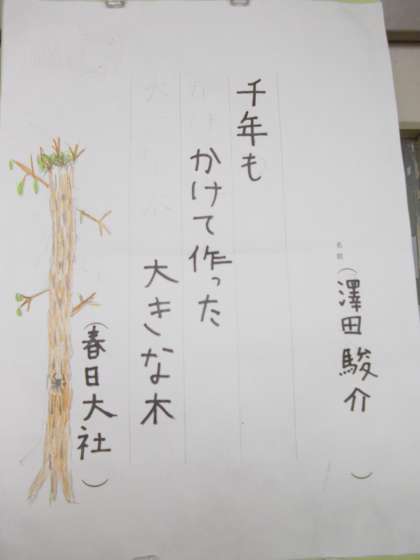 名前(澤田駿介)
千年も
かけて作った
大きな木
(春日大社)